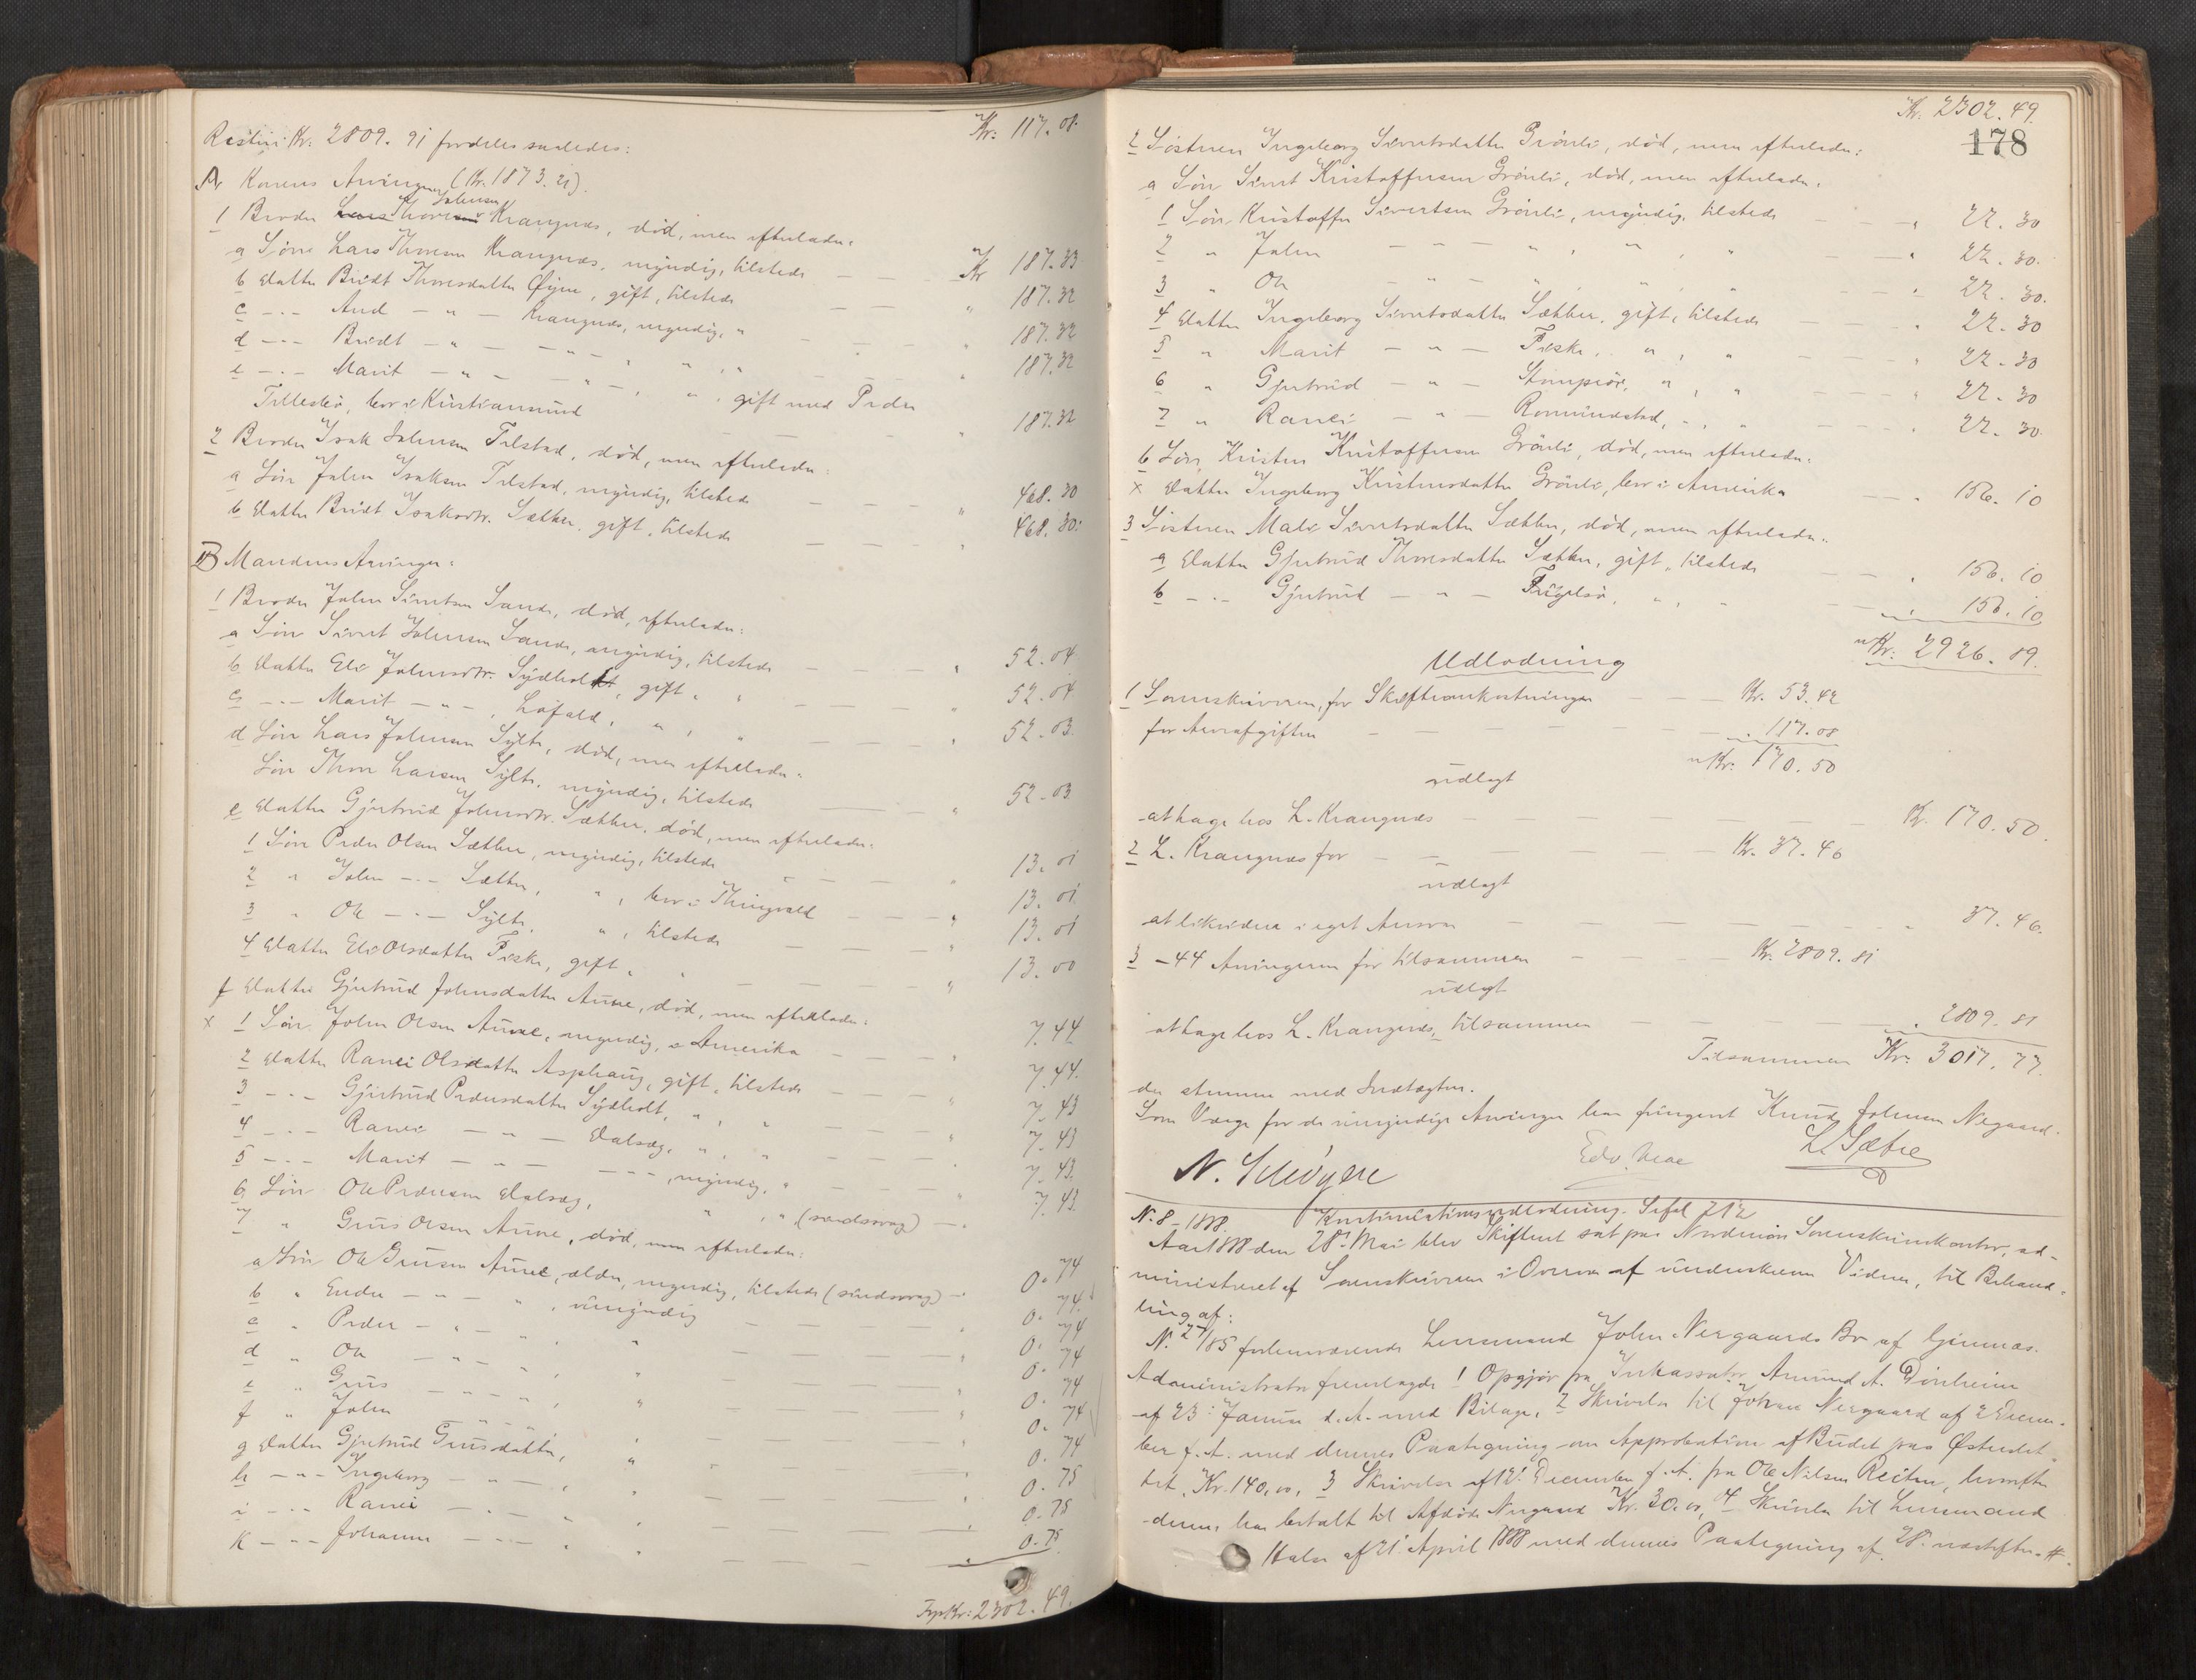 Kr. 117.08.
Restin: Kr. 2809.91 fordeles saaledes:
A Konens Arvinger (Kr. 1873.21).
1 Broder Thore Johnsen Krangnæs, død, men efterlader:
a Søn Lars Thoresen Krangnæs, myndig, tilstede — — Kr 187.33
b Datter Bridt Thoresdatter Øyen, gift, tilstede — " 187.32
c — " — And — " — Krangnæs, myndig, " — " 187.32
d — " — Bridt — " — — " — " , " — " 187.32
e — " — Marit — " — — " — , " , gift med Peder
Tillesbø, bor i Kristiansund — — " 187.32
2 Broder Isak Johnsen Tilstad, død, men efterlader:
a Søn John Isaksen Tilstad, myndig, tilstede — " 468.30
b Datter Bridt Isaksdtr. Sæther, gift, tilstede — " 468.30.
B Mandens Arvinger:
1 Broder John Sivertsen Sande, død, efterlader:
a Søn Sivert Johnsen Sande, myndig, tilstede — " 52.04
b Datter Eli Johnsdtr. Sydholt, gift " " — " 52.04
c — " — Marit — " — , Lofald, " , " — " 52.03.
d Søn Lars Johnsen Sylte, død, men efterlader:
Søn Thore Larsen Sylte, myndig, tilstede — " 52.03
e Datter Gjertrud Johnsdtr. Sæther, død, men efterlader:
1 Søn Peder Olsen Sæther, myndig, tilstede — " 13.01
2 " John — " — Sæther, " , bor i Thingvold — " 13.01
3 " Ole — " — Sylte, " , tilstede — " 13.01
4 Datter Eli Olsdatter Fiske, gift, " — " 13.00
f Datter Gjertrud Johnsdatter Aune, død, men efterlader:
x 1 Søn John Olsen Aune, myndig, i Amerika — " 7.44
2 Datter Ranei Olsdatter Asphaug, gift, tilstede — " 7.44.
3 — " — Gjertrud Pedersdatter Sydholt, " , " — " 7.43
4 — " — Ranei — " — Dalsæg, " , " — " 7.43
5 — " — Marit — " — — " — , myndig, " — " 7.43.
6 Søn Ole Pedersen Dalsæg, " , " (sindssvag) — " 7.43
7 " Gruis Olsen Aune, død, men efterlader:
a Søn Ole Gruisen Aune, ældre, myndig, tilstede (sindssvag) — " 0.74
b " Endre — " — " , umyndig — " 0.74.
c " Peder — " — " , " — " 0.74
d " Ole — " — " , " — " 0.74
e " Gruis — " — " , " — " 0.74
f " John — " — " , " — " 0.74
g Datter Gjertrud Gruisdatter, " — " 0.74
h — " — Ingeborg — " — , " — " 0.75
i — " — Ranei — " — , " — " 0.75
k — " — Johanne — " — , " — " 0.75
Kr: 2302.49.
Kr. 2302.49.
178
2 Søsteren Ingeborg Sivertsdatter Grønli, død, men efterlader:
a Søn Sivert Kristoffersen Grønli, død, men efterlader.
1 Søn Kristoffer Sivertsen Grønli, myndig, tilstede — " 22.30
2 " John — " — " , " , " — " 22.30.
3 " Ole — " — " , " , " — " 22.30.
4 Datter Ingeborg Sivertsdatter Sæther, gift, tilstede — " 22.30
5 " Marit — " — Fiske, " , " — " 22.30
6 " Gjertrud — " — Stomprør, " , " — " 22.30
7 " Ranei — " — Romundstad, " , " — " 22.30
b Søn Kristen Kristoffersen Grønli, død, men efterlader:
x Datter Ingeborg Kristensdatter Grønli, bor i Amerika — " 156.10
3 Søsteren Mali Sivertsdatter Sæther, død, men efterlader:
a Datter Gjertrud Thoresdatter Sæther, gift, tilstede — " 156.10
b — " — Gjertrud — " — Fugelsø, " , " — " 156.10
Kr: 2926.89.
Udlodning
1 Sorenskriveren, for Skifteomkostninger — — Kr. 53.42
for Arveafgiften — — — " 117.08
Kr: 170.50
udlagt
at hæve hos L. Krangnæs — — — Kr. 170.50.
2 L. Krangnæs for — — Kr. 37.46
udlagt
at likvidere i eget Ansvar — — — " 37.46.
3 — 44 Arvingerne for tilsammen — — Kr. 2809.81
udlagt
at hæve hos L. Krangnæs, tilsammen — — " 2809.81
Tilsammen Kr: 3017.77.
der stemmer med Indtægten.
Som Værge for de umyndige Arvinger har fungeret Knud Johnsen Negaard.
Edv. L. Sæbre
N.
N. 8 – 1888. Kontinuationsudlodning. Sefol 212
Aar 1888 den 28' Mai blev Skifteret sat paa Nordmøre Sorenskriverkontor, ad-
ministreret af Sorenskriveren i Overvær af underskrevne Vidner, til Behand-
ling af:
N. 27/85 forhenværende Lensmand John Nergaards Bo af Gimnæs.
Administrator fremlagde 1 Opgjør fra Inkassator Amund A. Dønheim
af 23' Januar d. A. med Bilage, 2 Skrivelse til Johan Nergaard af 2 Decem-
ber f. A. med dennes Paategning om Approbation af Budet paa Østredet
tet, Kr. 140,00, 3 Skrivelse af 12' December f. A. fra Ole Nilsen Reiten, hvorefter
denne har betalt til Afdøde Nergaard Kr. 30.00, 4 Skrivelse til Lensmand
Halse af 21' April 1888 med dennes Paategning af 28' næstefter. #.